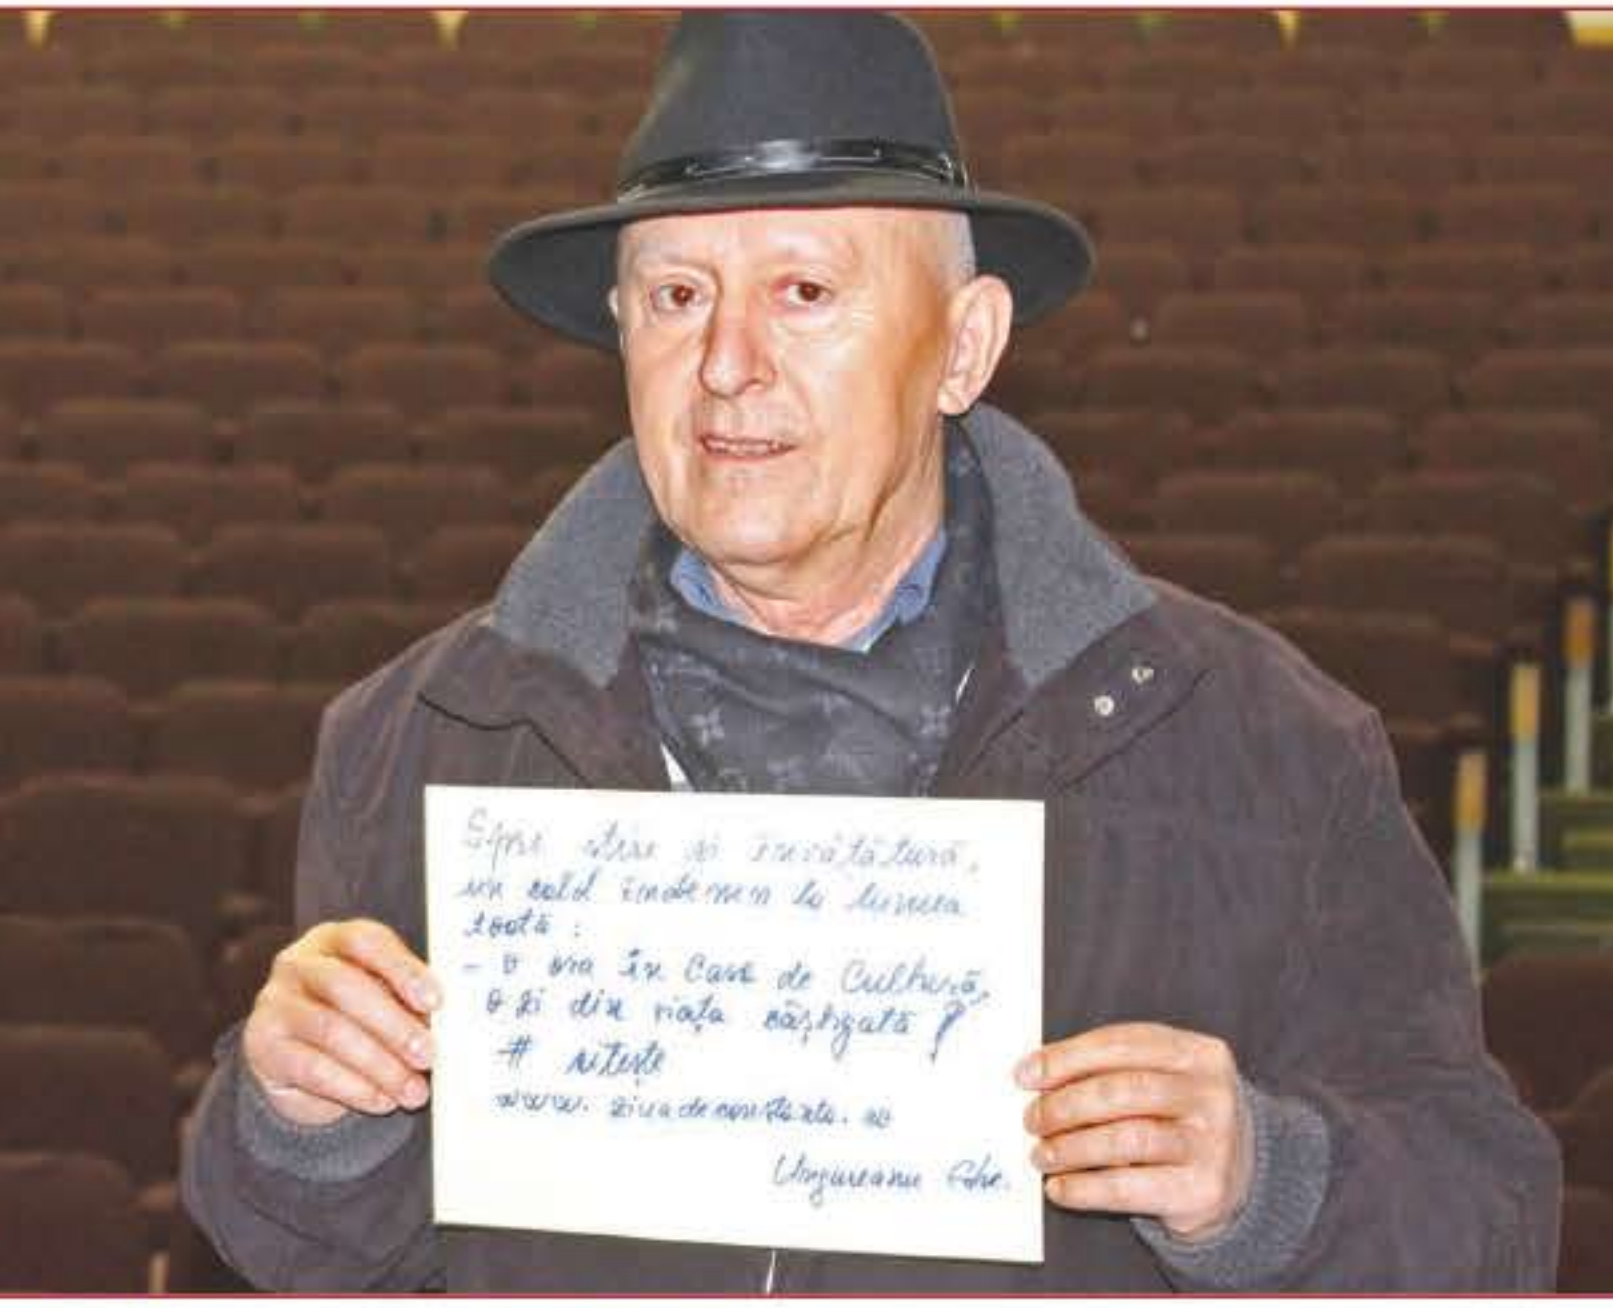 Spre știre și învățătură,
un cald îndemn la lumea
toată :
- O oră în Casa de Cultură,
o zi din viața câștigată !
# citește
www. ziuadeconstanta. ro
Ungureanu Ghe.